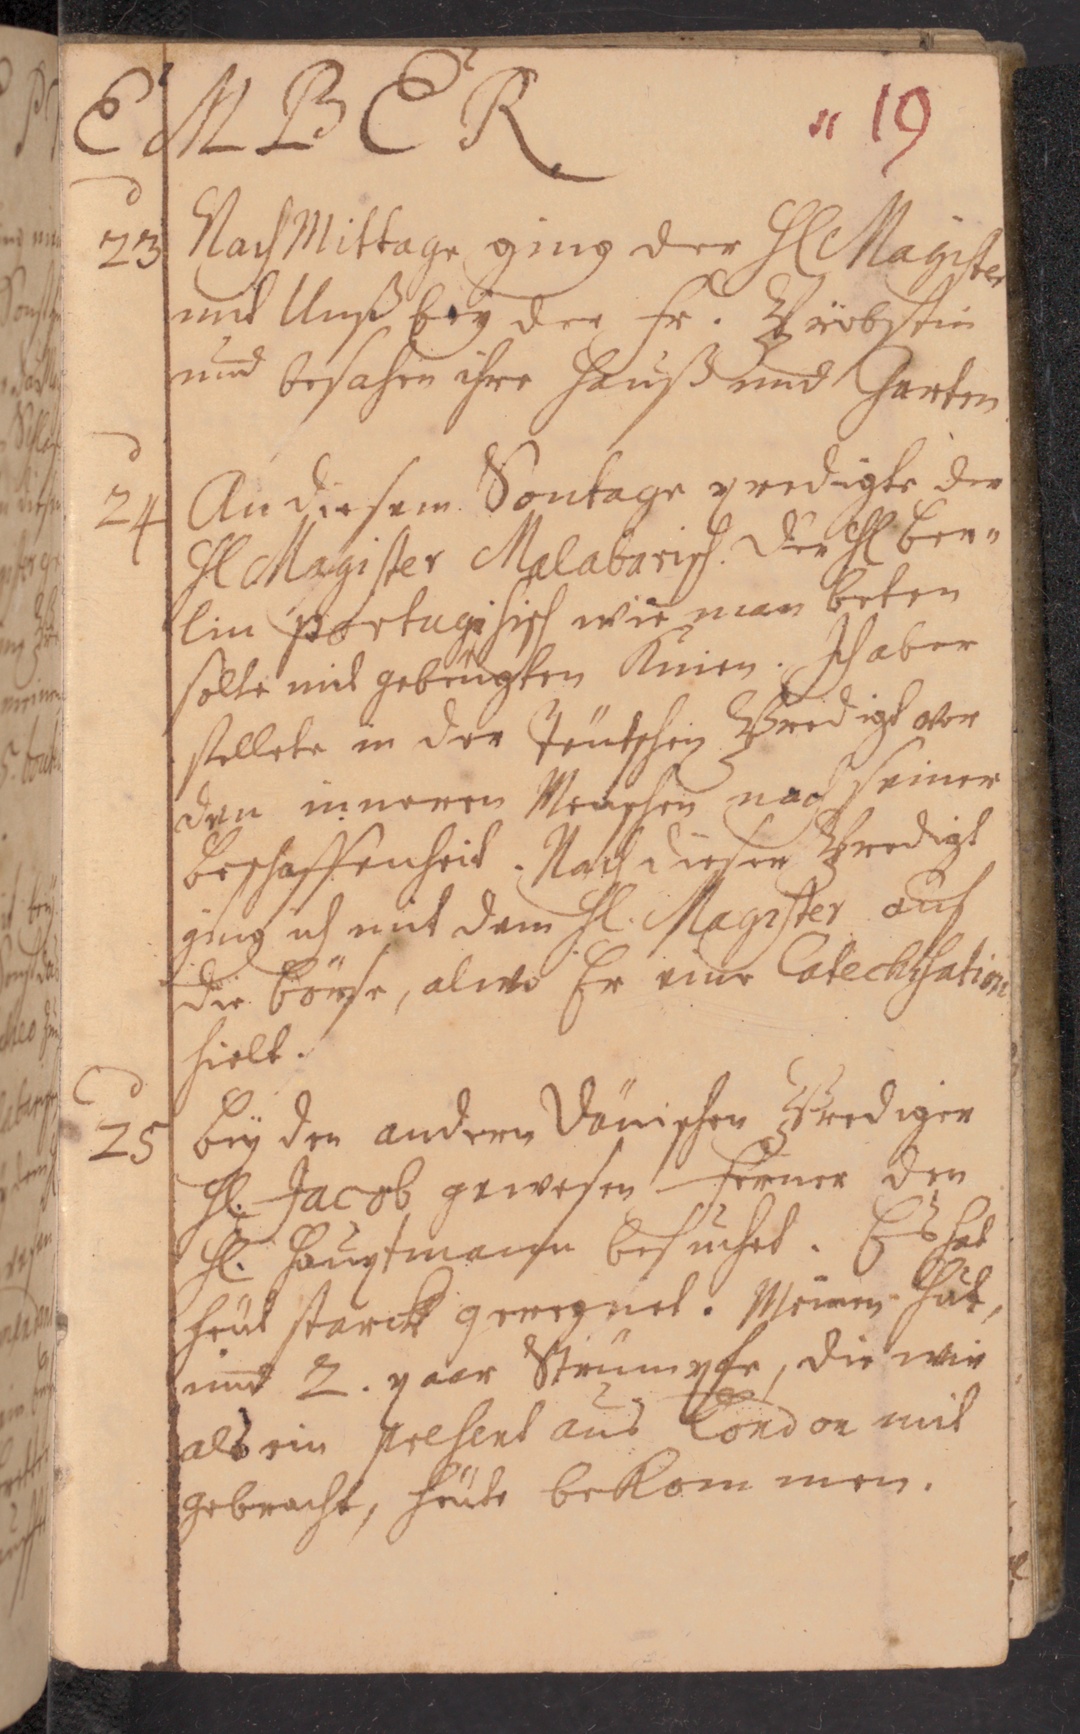 EMBER. 19
23 Nach Mittage ging der Hl Magister
mit Unß bey der Fr. Pröbstin
und besahen ihre Hauß und Garten
24 An diesem Sontage predigte der
Hl Magister Malabarisch. Der Hl Ber=
lin portugisisch wie man beten
solte mit gebeugten Knien. Ich aber
stellete in der Teutschen Predigt vor
den inneren Menschen nach seiner
Beschaffenheit. Nach dieser Predigt
ging ich mit dem Hl. Magister auf
die Börse, alwo Er eine Catechisation
hielt.
25 bey den andern Dänischen Prediger
Hl. Jacob gewesen ferner den
Hl. Hauptmann besuchet. Es hat
heut starck geregnet. Meinen Hut,
und 2. paar Strümpfe, die wir
als ein present aus London mit
gebracht, heute bekommen.